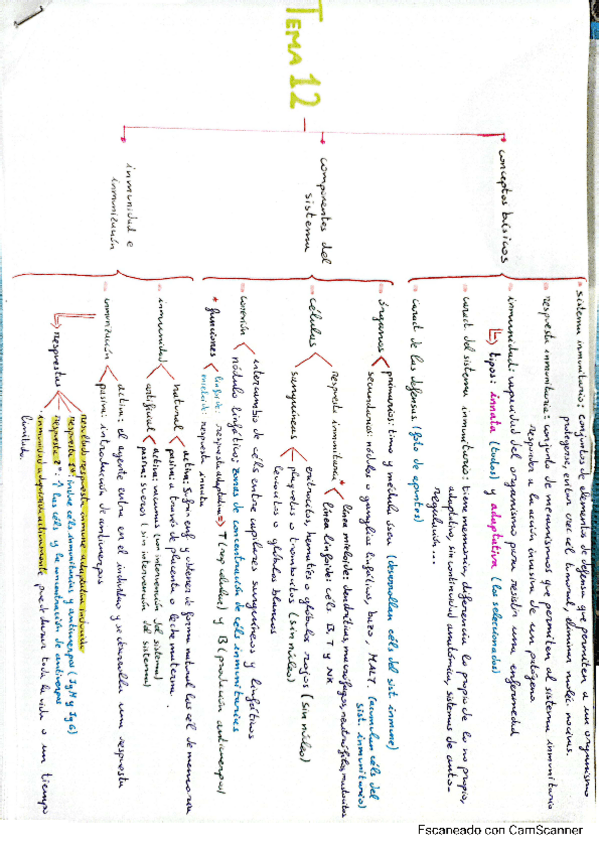 TEMA 12
conceptos básicos
sistema inmunitario: conjuntos de elementos de defensa que permiten a un organismo
protegerse, evitar crec. cel. tumoral, eliminar moléc. nocivas.
respuesta inmunitaria: conjunto de mecanismos que permiten al sistema inmunitario
responder a la acción invasiva de un patógeno
inmunidad: capacidad del organismo para resistir una enfermedad
tipos: innata (todos) y adaptativa (los seleccionados)
caract. del sistema inmunitario: tiene memoria, diferencia lo propio de lo no propio,
adaptativo, sin continuidad anatómica, sistemas de auto-
regulación...
caract de las defensas (foto de apuntes)
componentes del
sistema
órganos
primarios: timo y médula ósea (desarrollan céls del sist. inmune)
secundarios: nódulos o ganglios linfáticos, bazo, MALT. (acumulan céls del
sist. inmunitario)
células
respuesta inmunitaria
línea mieloide: dendríticas, macrófagos, neutrófilos, mastocitos
línea linfoide: céls B, T y NK
sanguíneas
eritrocitos, hematíes o glóbulos rojos (sin núcleo)
plaquetas o trombocitos (sin núcleo)
leucocitos o glóbulos blancos
conexión
intercambio de céls entre capilares sanguíneos y linfáticos
nódulo linfático: zonas de concentración de céls inmunitarias
* funciones
linfoide: respuesta adaptativa T (resp. celular) y B (producción anticuerpos)
mieloide: respuesta innata
inmunidad e
inmunización
inmunidad
natural
activa: sufrir enf. y obtener de forma natural las cél. de memoria
pasiva: a través de placenta o leche materna.
artificial
activa: vacunas (con intervención del sistema)
pasiva: sueros (sin intervención del sistema)
inmunización
activa: el agente entra en el individuo y se desarrolla una respuesta
pasiva: introducción de anticuerpos
respuestas
resultado respuesta inmune adaptativa inducida
respuesta 1ª: induce céls inmunitarias y anticuerpos (IgM y IgG)
respuesta 2ª: ↑ las céls y la concentración de anticuerpos
inmunidad adquirida activamente puede durar toda la vida o un tiempo
limitado.
Escaneado con CamScanner